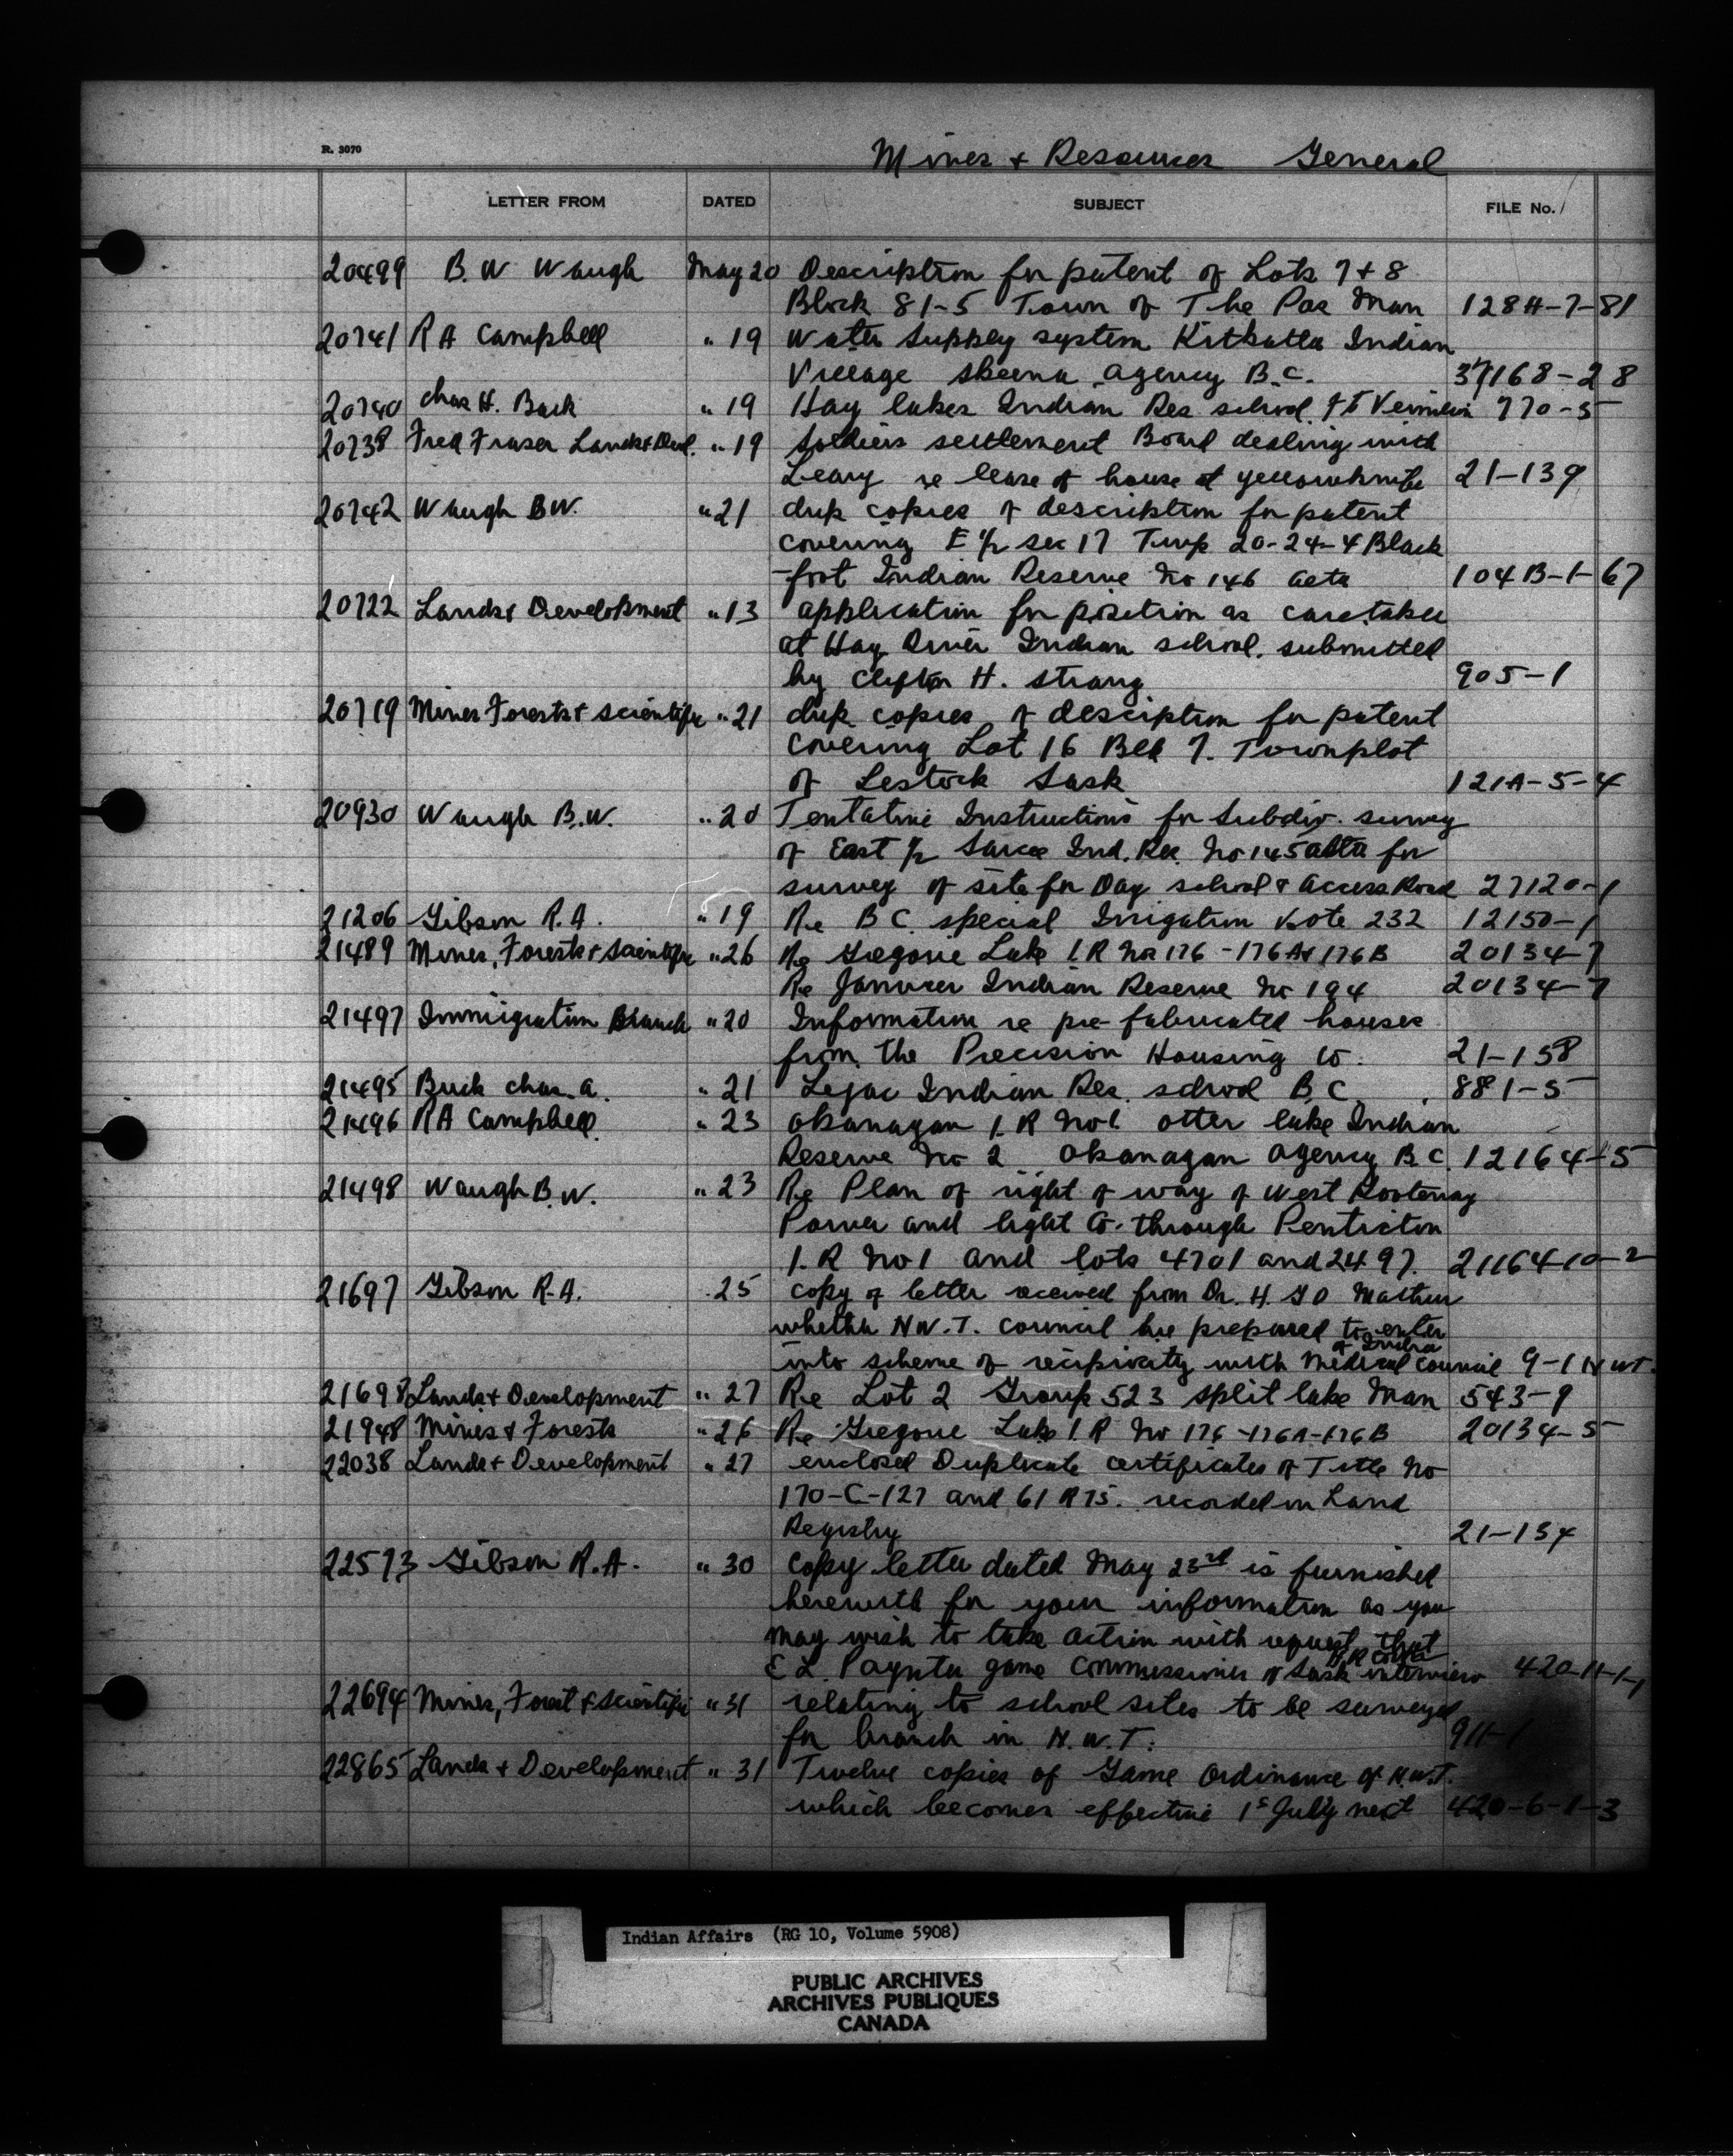 R. 3070
Mines & Resources General
LETTER FROM DATED SUBJECT FILE No.
20499 B. W Waugh May 20 Description for patent of Lots 7 + 8
Block 81-5 Town of The Pas Man 128A-7-81
20741 R A Campbell " 19 Water Supply system Kitkatla Indian
Village Skeena Agency B.C. 37168-28
20740 Chas H. Buck " 19 Hay lakes Indian Res school Ft Vermilion 770-5
20738 Fred Fraser Lands & Devel. " 19 Soldiers settlement Board dealing with
Leary re lease of house at yellowknife 21-139
20742 Waugh B W. " 21 dup copies of description for patent
covering E 1/2 sec 17 Twp 20-24-4 Black
-foot Indian Reserve No 146 Alta 104B-1-67
20722 Lands & Development " 13 application for position as caretaker
at Hay River Indian school. submitted
by Clifton H. Strang 905-1
20719 Mines Forests & scientific " 21 dup copies of desciption for patent
covering Lot 16 Blk 7. Townplot
of Lestock Sask 121A-5-4
20930 Waugh B.W. " 20 Tentative Instructions for Subdiv. survey
of East 1/2 Sarcee Ind. Res. No 145 Alta for
survey of site for Day school & Access Road 27120-1
21206 Gibson R.A. " 19 Re B C. special Irrigation Vote 232 12150-1
21489 Mines, Forests & Scientific " 26 Re Gregoire Lake I.R No 176 - 176A & 176B 20134-7
Re Janvier Indian Reserve No 194 20134-7
21497 Immigration Branch " 20 Information re pre-fabricated houses
from the Precision Housing Co. 21-158
21495 Buck Chas. A. " 21 Lejac Indian Res. school B.C. 881-5
21496 R A Campbell. " 23 Okanagan I. R No 1. Otter lake Indian
Reserve No 2 Okanagan Agency B.C. 12164-5
21498 Waugh B.W. " 23 Re Plan of right of way of West Kootenay
Power and light Co. through Penticton
I. R No 1 and lots 4701 and 2497. 21164-10-2
21697 Gibson R.A. " 25 copy of letter received from Dr. H. G O
whether N.W.T. Council be prepared to enter
into scheme of recipricity with Medical Council of India 9-1 N W T.
21698 Lands & Development " 27 Re Lot 2 Group 523 split lake Man 543-9
21948 Mines & Forests " 26 Re Gregoire Lake I. R No 176-176A-176B 20134-5
22038 Lands & Development " 27 enclosed Duplicate certificates of Title No
170-C-127 and 61 R 75. recorded in Land
Registry 21-154
22573 Gibson R.A. " 30 copy letter dated May 23rd is furnished
herewith for your information as you
may wish to take action with request that
E L. Paynter game commissioner of Sask interview 420-11-1-1
22694 Mines, Forest & Scientific " 31 relating to school sites to be surveyed
for branch in N.W.T. 911-1
22865 Lands & Development " 31 Twelve copies of Game Ordinance of N.W.T.
which becomes effective 1s July next 420-6-1-3
Indian Affairs (RG 10, Volume 5908)
PUBLIC ARCHIVES
ARCHIVES PUBLIQUES
CANADA